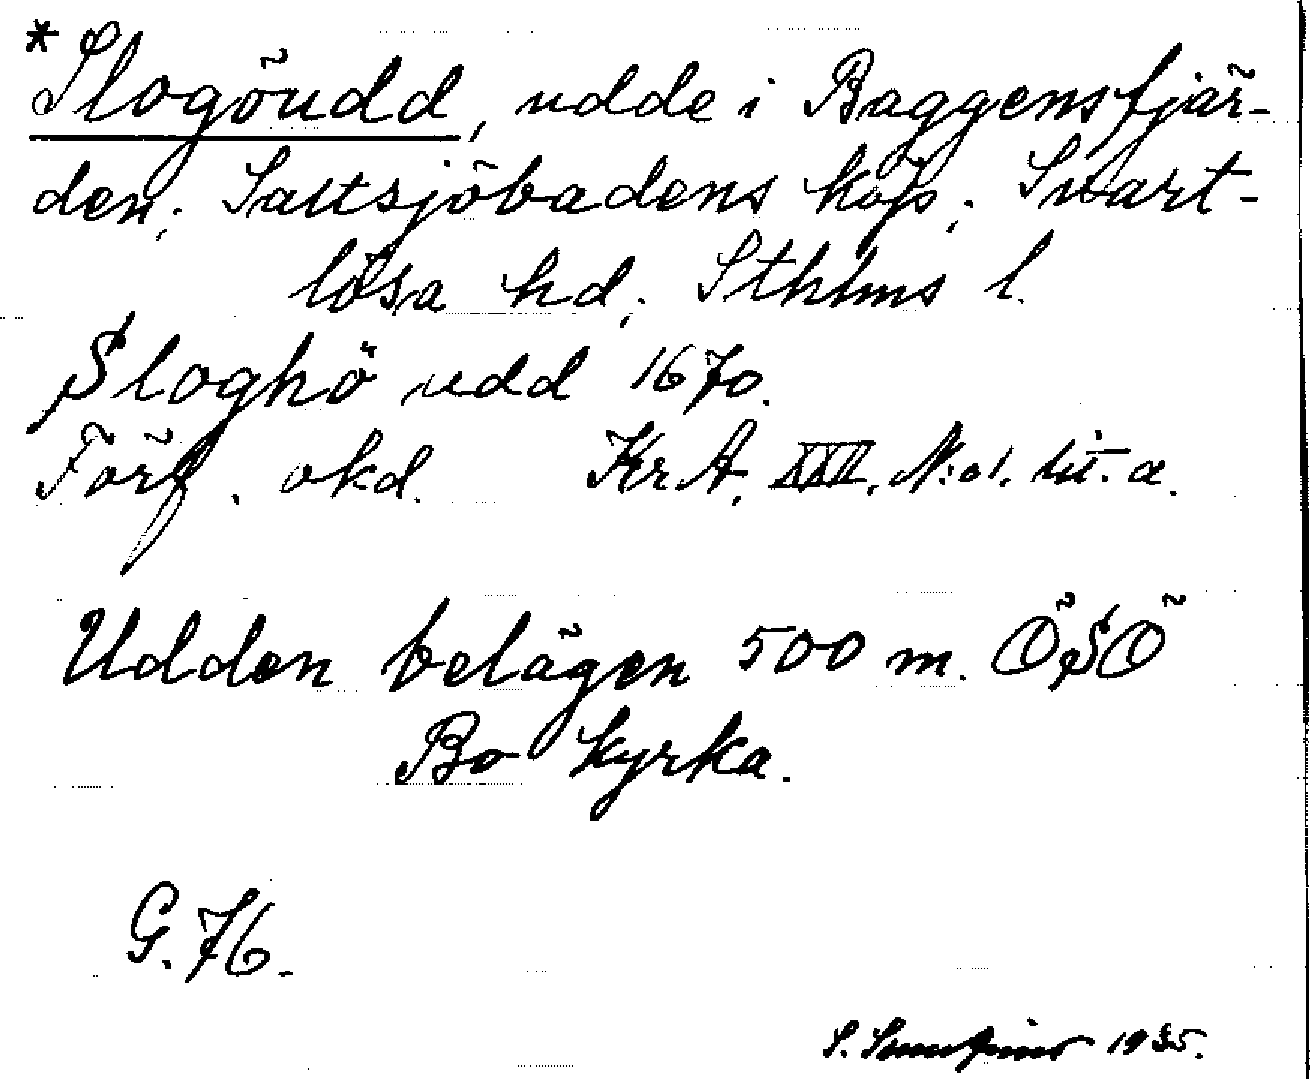 *Slogöudd, udde i Baggensfjär-
den, Saltsjöbadens köp., Svart-
lösa hd, Sthlms l.
Sloghö udd 1670.
Förf. okd. KrA, XXII, N:o 1. lit. a.
Udden belägen 500 m. ÖSÖ
Bo kyrka.
G. 76.
S. 1935.